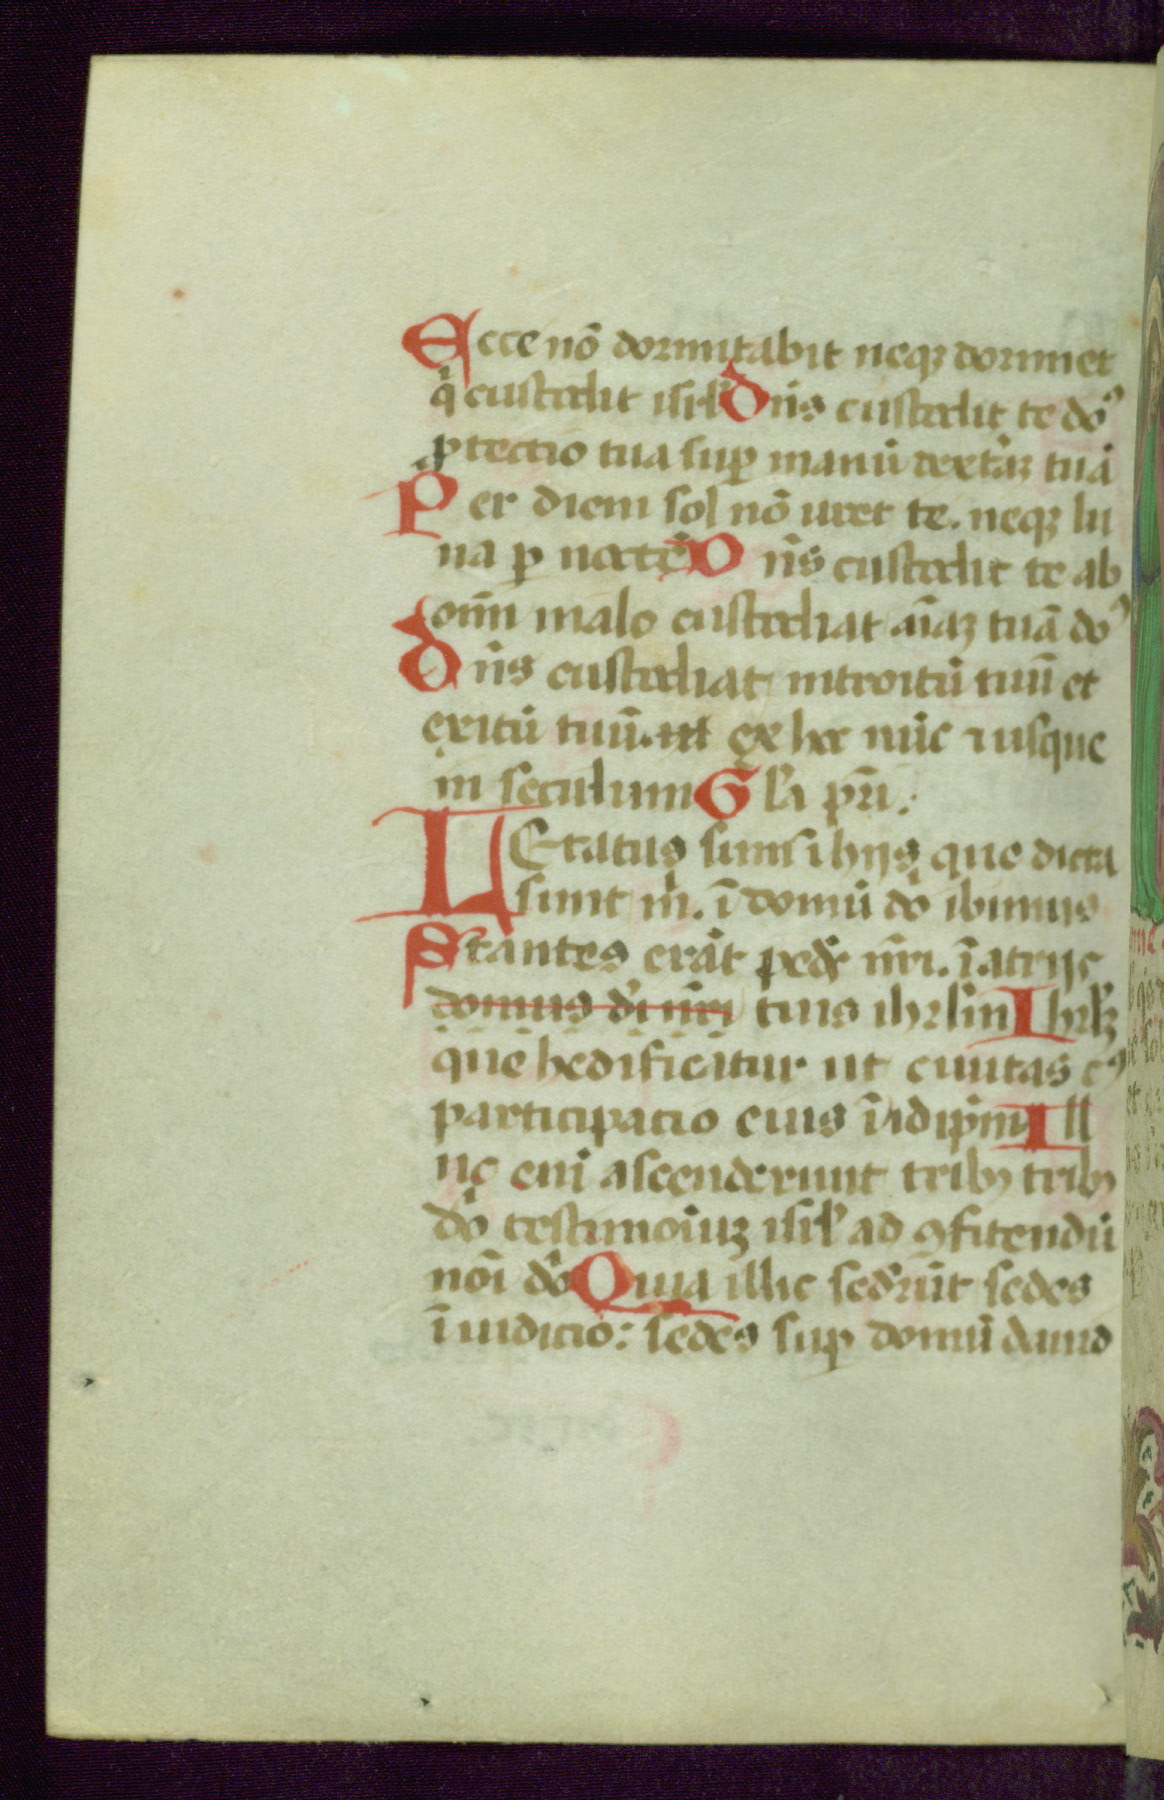 Ecce nō dormitabit neqꝫ dormiet
qͥ custodit isrl̓ Dn̄s custodit te dn̄s
ꝓtectio tua suꝑ manū dextᵃꝫ tuā
Per diem sol nō uret te. neqꝫ lu
na ꝑ noctē Dn̄s custodit te ab
om̄i malo custodiat aīaꝫ tuā do᷒
Dn̄s custodiat introitū tuū et
exitū tuū. ex hoc nūc ⁊ usque
in seculum Gl̓ia pr̄i.
LEtatus sum ī hijs que dicta
sunt m̄. ī domū do᷒ ibimus
Stantes erāt pedes nr̄i. ī atrijs
domus dei nr̄i tuis ihrl̓m Ihrl̓ꝫ
que hedificatur ut ciuitas c᷒
participatio eius ī idip̄m Ill
uc enī ascenderunt tribꝫ tribꝫ
do᷒ testimoīuꝫ isrl̓ ad ꝯfitendū
noī do᷒ Quia illic sederūt sedes
ī iudicio: sedes suꝑ domū dauid